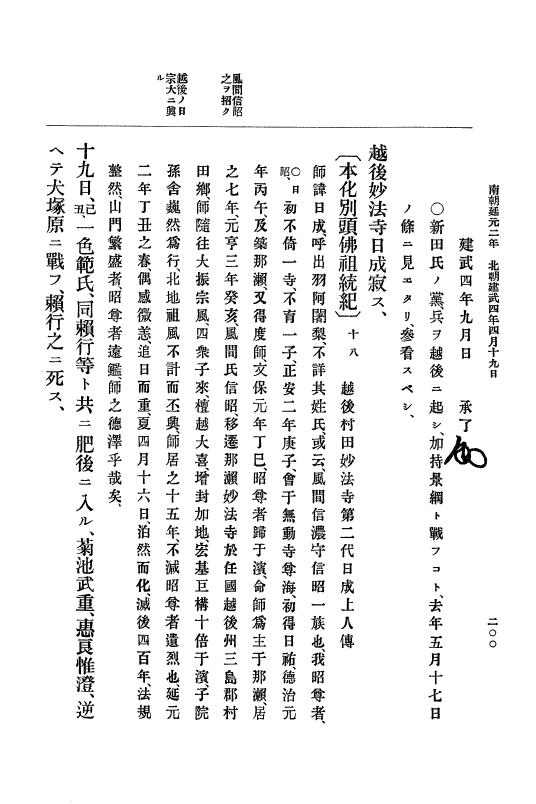 南朝延元二年　北朝建武四年四月十九日
二〇〇
建武四年九月日　承了
〇新田氏ノ黨兵ヲ越後ニ起シ、加持景綱ト戰フコト、去年五月十七日
ノ條ニ見エタリ、參看スベシ、
越後妙法寺日成寂ス、
〔本化別頭佛祖統紀〕十八　越後村田妙法寺第二代日成上人傳
師諱日成、呼出羽阿闍梨、不詳其姓氏、或云、風間信濃守信昭一族也、我昭尊者、
〇日昭、初不倚一寺、不育一子、正安二年庚子、會于無動寺尊海、初得日祐、德治元
年丙午、及築那瀨、又得度師、文保元年丁巳、昭尊者歸于濱、命師爲主于那瀨、居
之七年、元亨三年癸亥、風間氏信昭移遷那瀨妙法寺於任國越後州三島郡村
田鄉、師隨往大振宗風、四衆子來、檀越大喜增封加地、宏基巨構十倍于濱、子院
孫舍巍然爲行、北地祖風不計而丕興、師居之十五年、不減昭尊者遺烈也、延元
二年丁丑之春偶感微恙、追日而重、夏四月十六日、泊然而化、滅後四百年、法規
整然山門繁盛者、昭尊者遠鑑師之德澤乎哉、
十九日、己丑、一色範氏、同賴行等ト共ニ肥後ニ入ル、菊池武重、惠良惟澄、逆
ヘテ犬塚原ニ戰フ、賴行之ニ死ス、
風間信昭
之ヲ招ク
越後ノ日
宗大ニ興
ル